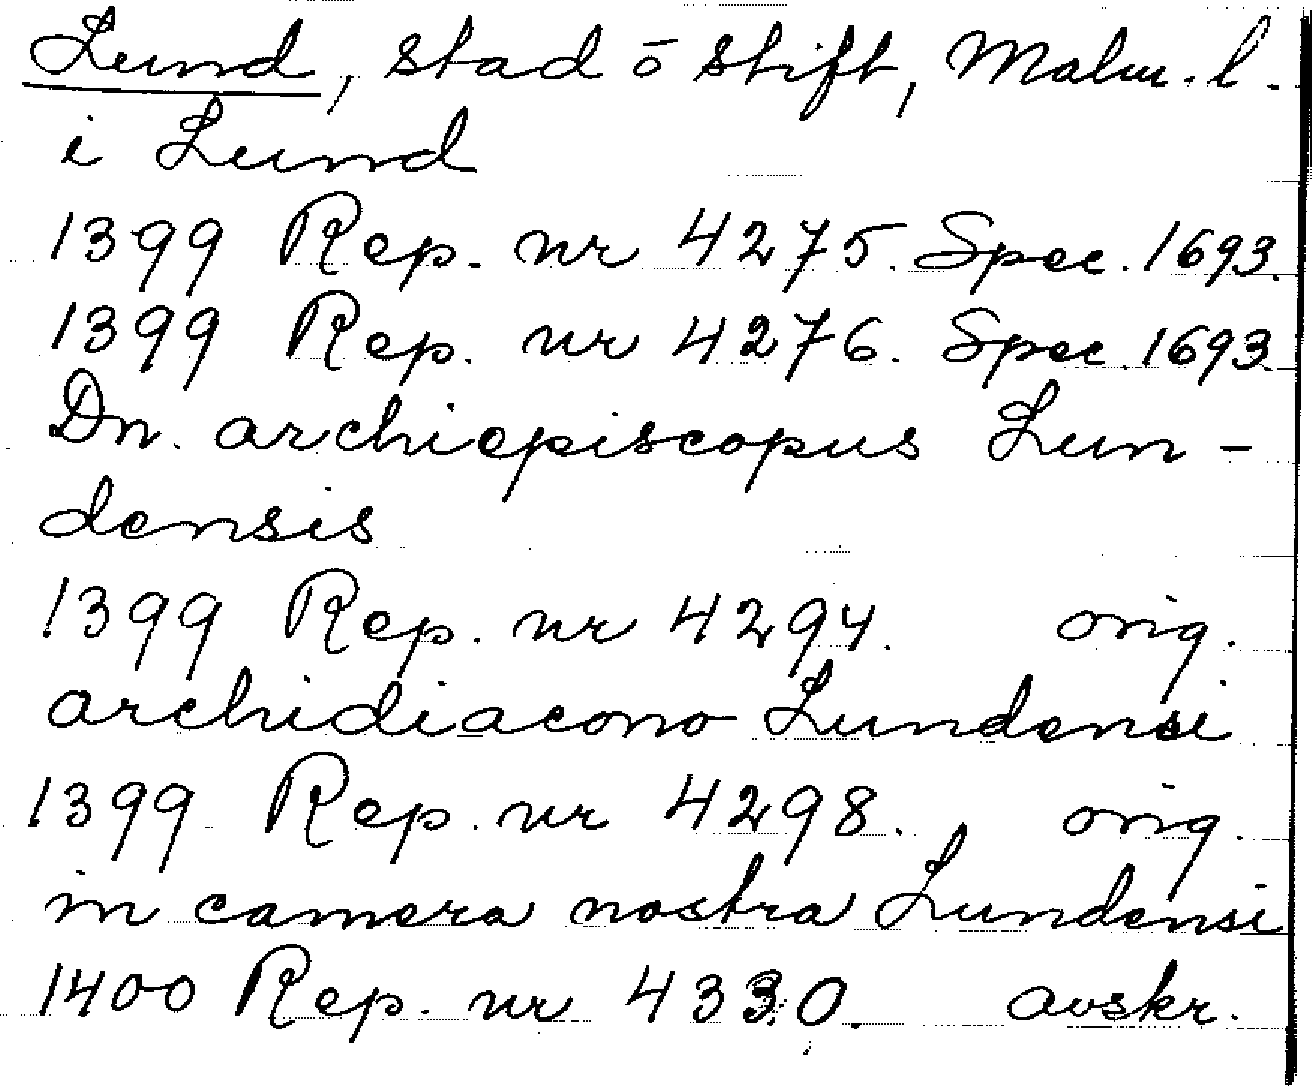 Lund, stad ō stift, Malm. l.
i Lund
1399 Rep. nr 4275. Spec. 1693.
1399 Rep. nr 4276. Spec. 1693.
Dn. archiepiscopus Lun-
densis
1399 Rep. nr 4294. orig.
archidiacono Lundensi
1399 Rep. nr 4298. orig.
in camera nostra Lundensi
1400 Rep. nr 4330. avskr.